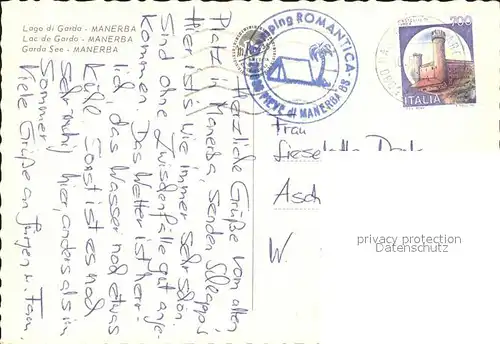 Lago di Garda - MANERBA
Lac de Garda - MANERBA
Garda See - MANERBA
Camping ROMANTICA
PIEVE di MANERBA BS.
700
ITALIA
Herzliche Grüße vom alten
Platz in Manerba, senden
Hier ist's wie immer sehr schön.
Sind ohne Zwischenfälle gut ange-
kommen. Das Wetter ist herr-
lich, das Wasser noch etwas
Kühl. Sonst ist es noch
sehr ruhig hier, anders als im
Sommer
Viele Grüße an Jürgen u. Fam.
Frau
Asch
W.
privacy protection
Datenschutz